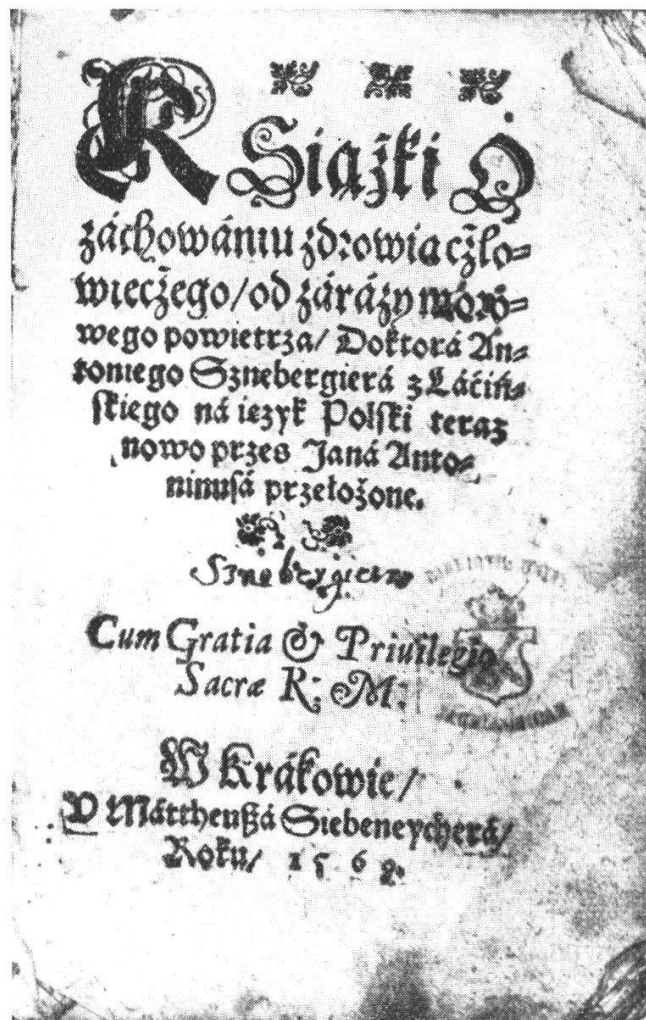 KSiążki O
záchowániu zdrowia cżło⸗
wiecżego/ od zárázy moro⸗
wego powietrza/ Doktorá An⸗
toniego Sznebergierá z Láciń⸗
skiego ná ięzyk Polski teraz
nowo przes Janá Anto⸗
ninusá przełożone.
Cum Gratia & Priuilegio
Sacræ R: M:
W Krákowie/
V Mattheußá Siebeneycherá/
Roku/ 1569.